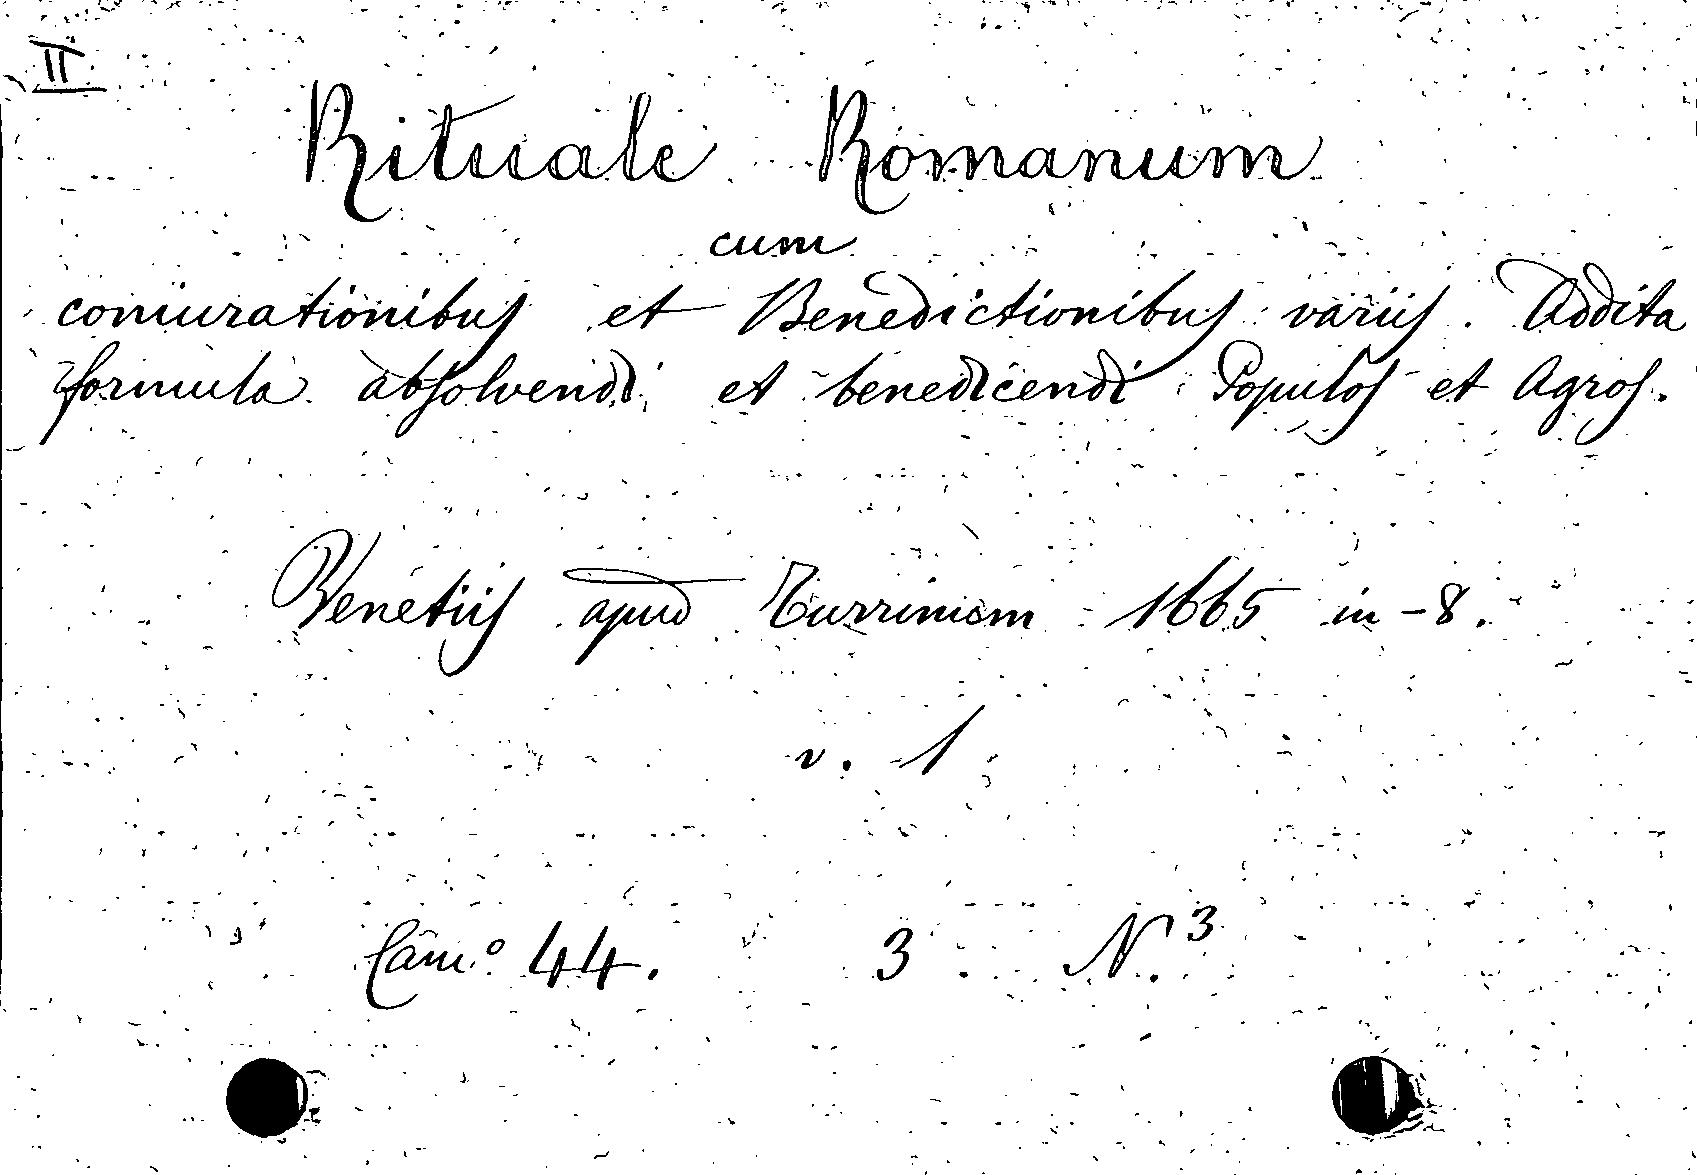 II
Rituale Romanum
cum
coniurationibus et Benedictionibus variis. Addita
formula absolvendi et benedicendi Populos et Agros.
Venetiis apud Turrinium 1665 in-8.
v. 1
Cam.º 44. 3 N. 3